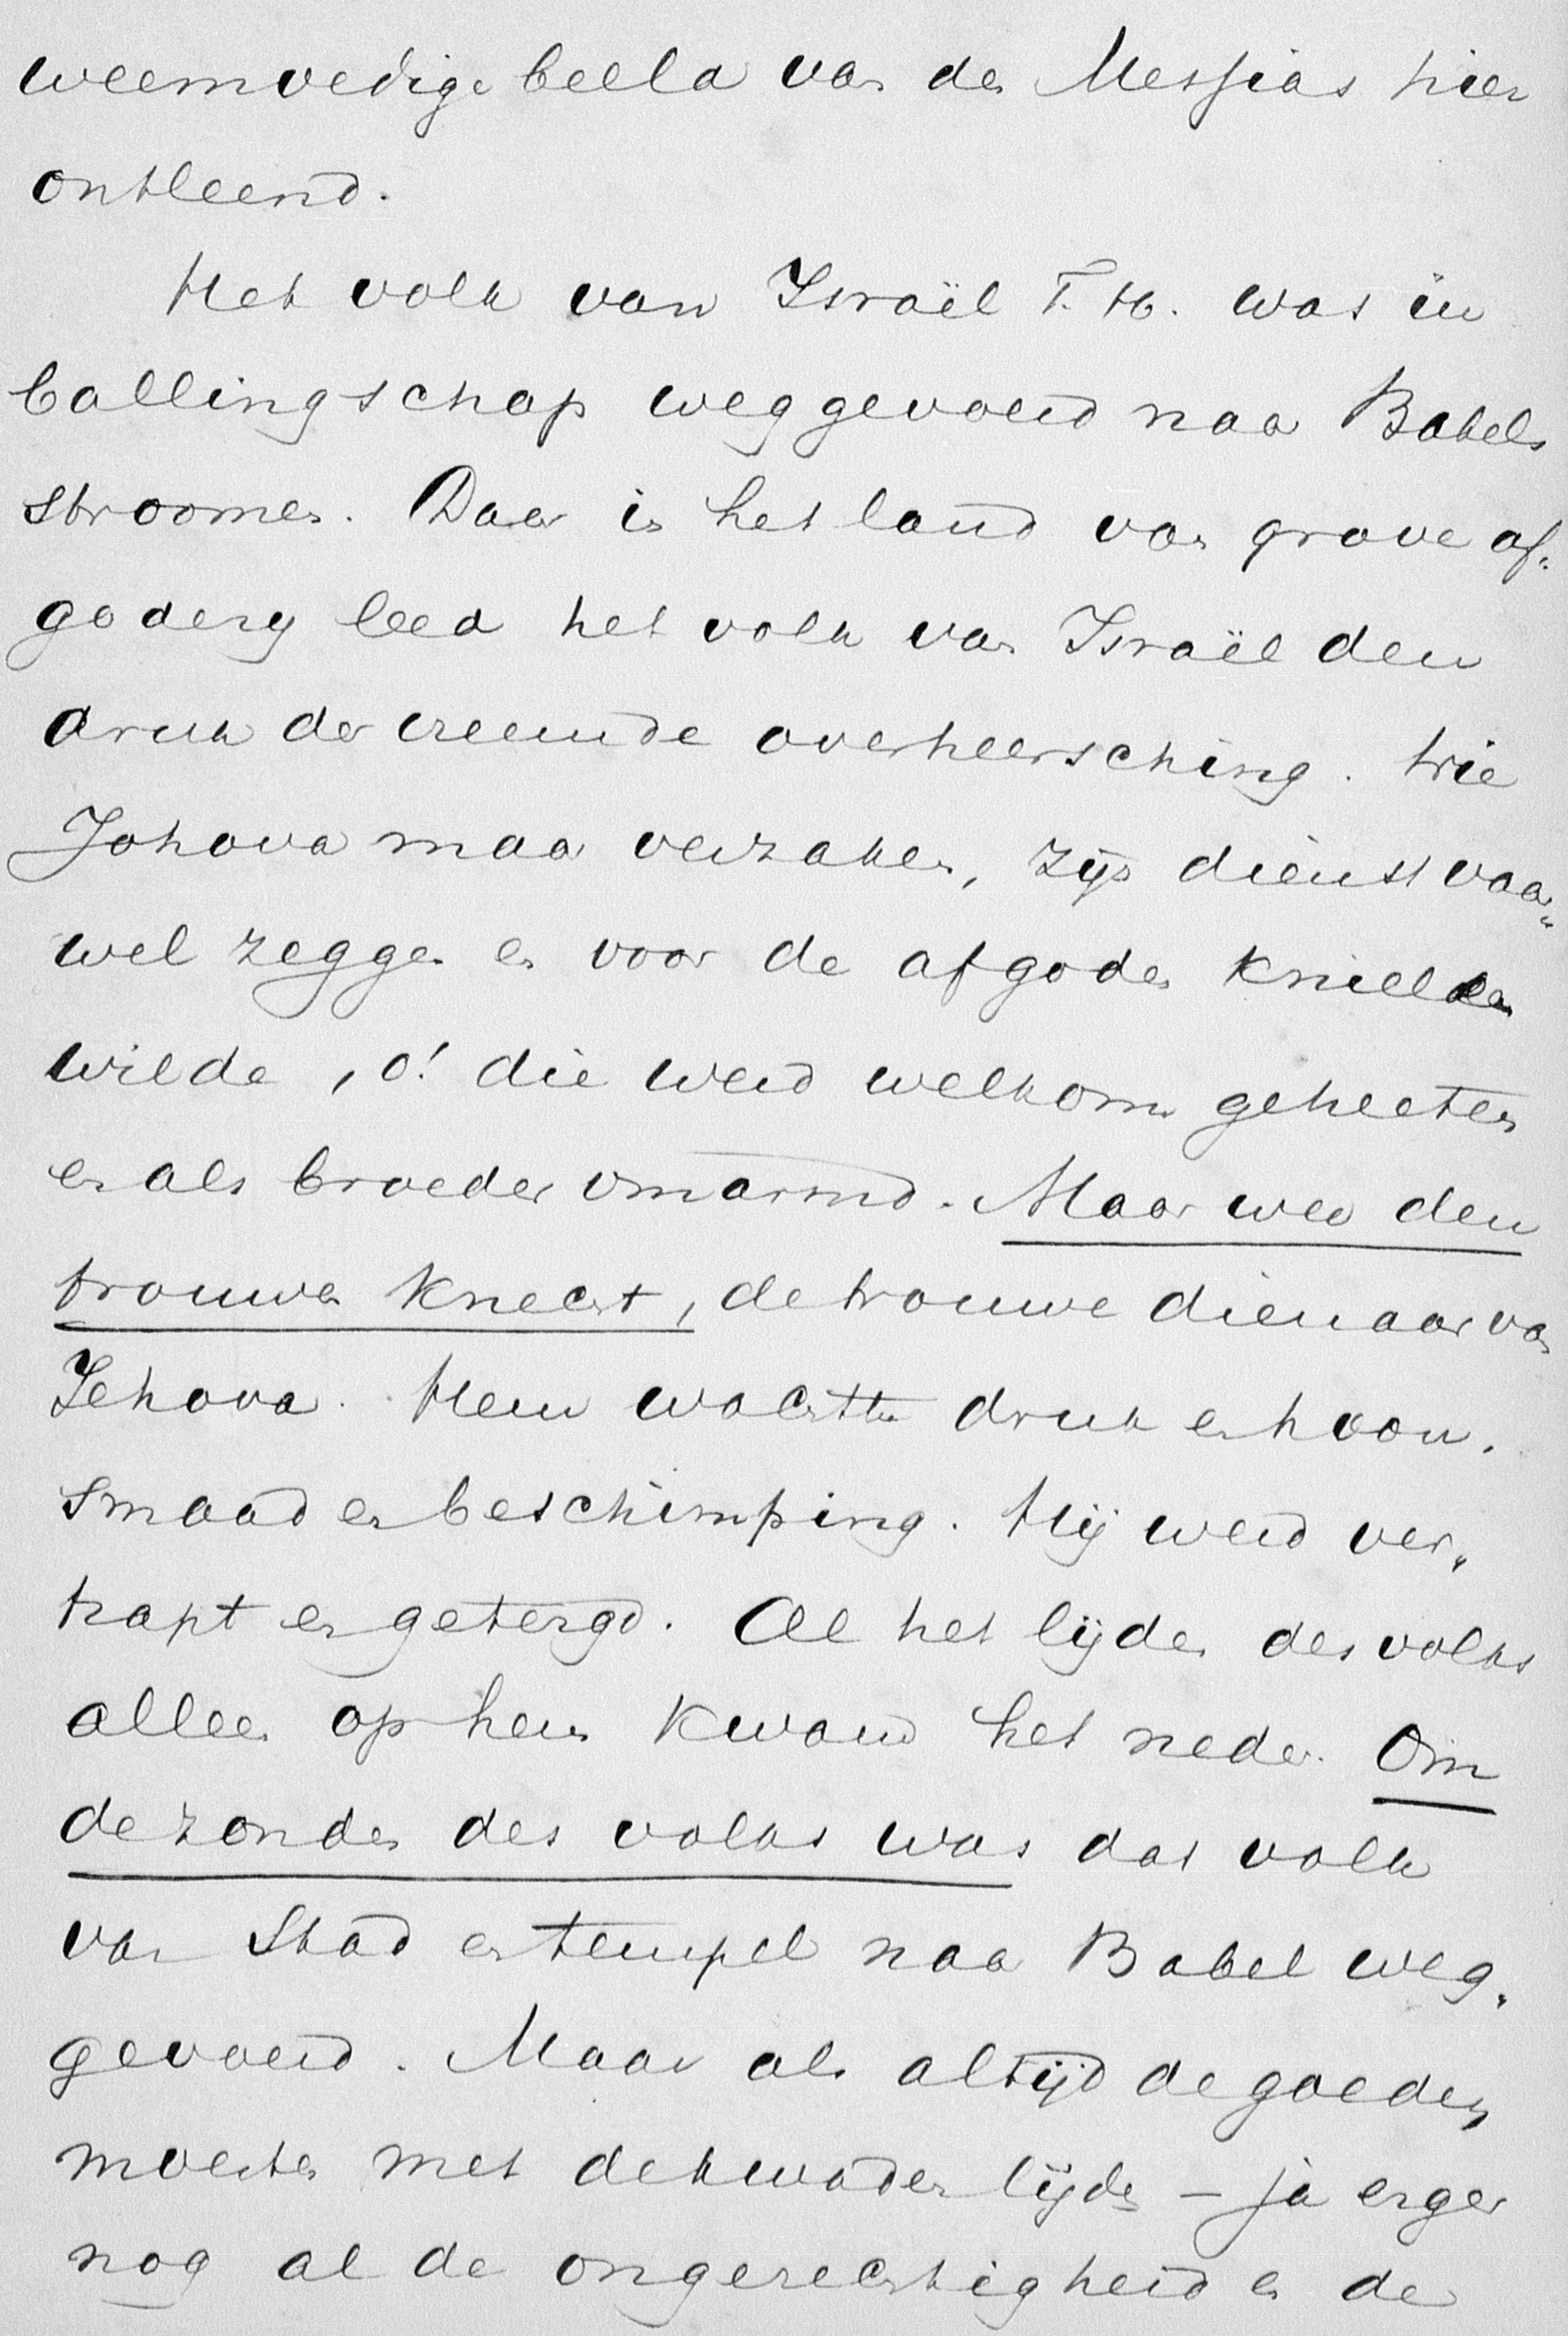 weemoedige beeld van den Messias hier
ontleend.
Het volk van Israël T. H. was in
ballingschap weggevoerd naar Babels
stroomen. Daar in het land van grove af-
godery leed het volk van Israël den
druk der vreemde overheersching. Wie
Johova maar verzaken, zijn dienst vaar-
wel zeggen en voor de afgoden knielen
wilde, o! die werd welkom geheeten
en als broeder omarmd. Maar wee den
trouwen knecht, de trouwe dienaar van
Jehova. Hem wachtte druk en hoon,
smaad en beschimping. Hij werd ver-
trapt en getergd. Al het lijden des volks
alleen op hem kwam het neder. Om
de zonden des volks was dat volk
van Stad en tempel naar Babel weg-
gevoerd. Maar als altijd de goeden
moesten met de kwaden lijden – ja erger
nog al de ongerechtigheid en de